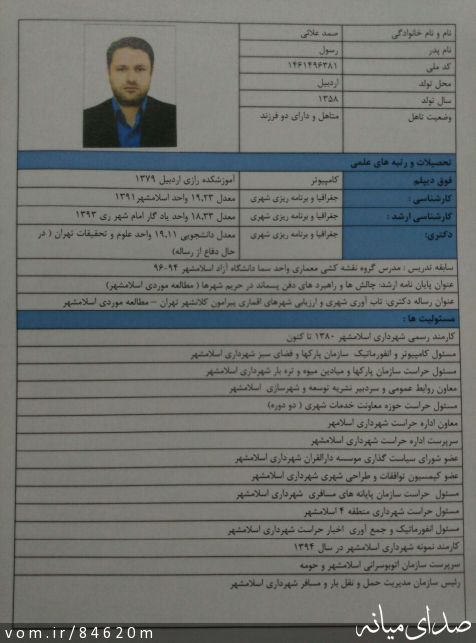 نام و نام خانوادگی صمد علائی
نام پدر رسول
کد ملی ۱۴۶۱۴۹۶۳۸۱
محل تولد اردبیل
سال تولد ۱۳۵۸
وضعیت تاهل متاهل و دارای دو فرزند
تحصیلات و رتبه های علمی
فوق دیپلم کامپیوتر آموزشکده رازی اردبیل ۱۳۷۹
کارشناسی : جغرافیا و برنامه ریزی شهری معدل ۱۹،۲۳ واحد اسلامشهر۱۳۹۱
کارشناسی ارشد : جغرافیا و برنامه ریزی شهری معدل ۱۸،۳۳ واحد یاد گار امام شهر ری ۱۳۹۳
دکتری: جغرافیا و برنامه ریزی شهری معدل دانشجویی ۱۹،۱۱ واحد علوم و تحقیقات تهران ( در
حال دفاع از رساله)
سابقه تدریس : مدرس گروه نقشه کشی معماری واحد سما دانشگاه آزاد اسلامشهر ۹۴-۹۶
عنوان پایان نامه ارشد: چالش ها و راهبرد های دفن پسماند در حریم شهرها ( مطالعه موردی اسلامشهر)
عنوان رساله دکتری: تاب آوری شهری و ارزیابی شهرهای اقماری پیرامون کلانشهر تهران – مطالعه موردی اسلامشهر
مسئولیت ها :
کارمند رسمی شهرداری اسلامشهر ۱۳۸۰ تا کنون
مسئول کامپیوتر و انفورماتیک سازمان پارکها و فضای سبز شهرداری اسلامشهر
مسئول حراست سازمان پارکها و میادین میوه و تره بار شهرداری اسلامشهر
معاون روابط عمومی و سردبیر نشریه توسعه و شهرسازی اسلامشهر
مسئول حراست حوزه معاونت خدمات شهری ( دو دوره)
معاون اداره حراست شهرداری اسلامهر
سرپرست اداره حراست شهرداری اسلامشهر
عضو شورای سیاست گذاری موسسه دارالقران شهرداری اسلامشهر
عضو کمیسیون توافقات و طراحی شهری شهرداری اسلامشهر
مسئول حراست سازمان پایانه های مسافری شهرداری اسلامشهر
مسئول حراست شهرداری منطقه ۴ اسلامشهر
مسئول انفورماتیک و جمع آوری اخبار حراست شهرداری اسلامشهر
کارمند نمونه شهرداری اسلامشهر در سال ۱۳۹۴
سرپرست سازمان اتوبوسرانی اسلامشهر و حومه
رئیس سازمان مدیریت حمل و نقل بار و مسافر شهرداری اسلامشهر
vom.ir/84620m
صدای میانه